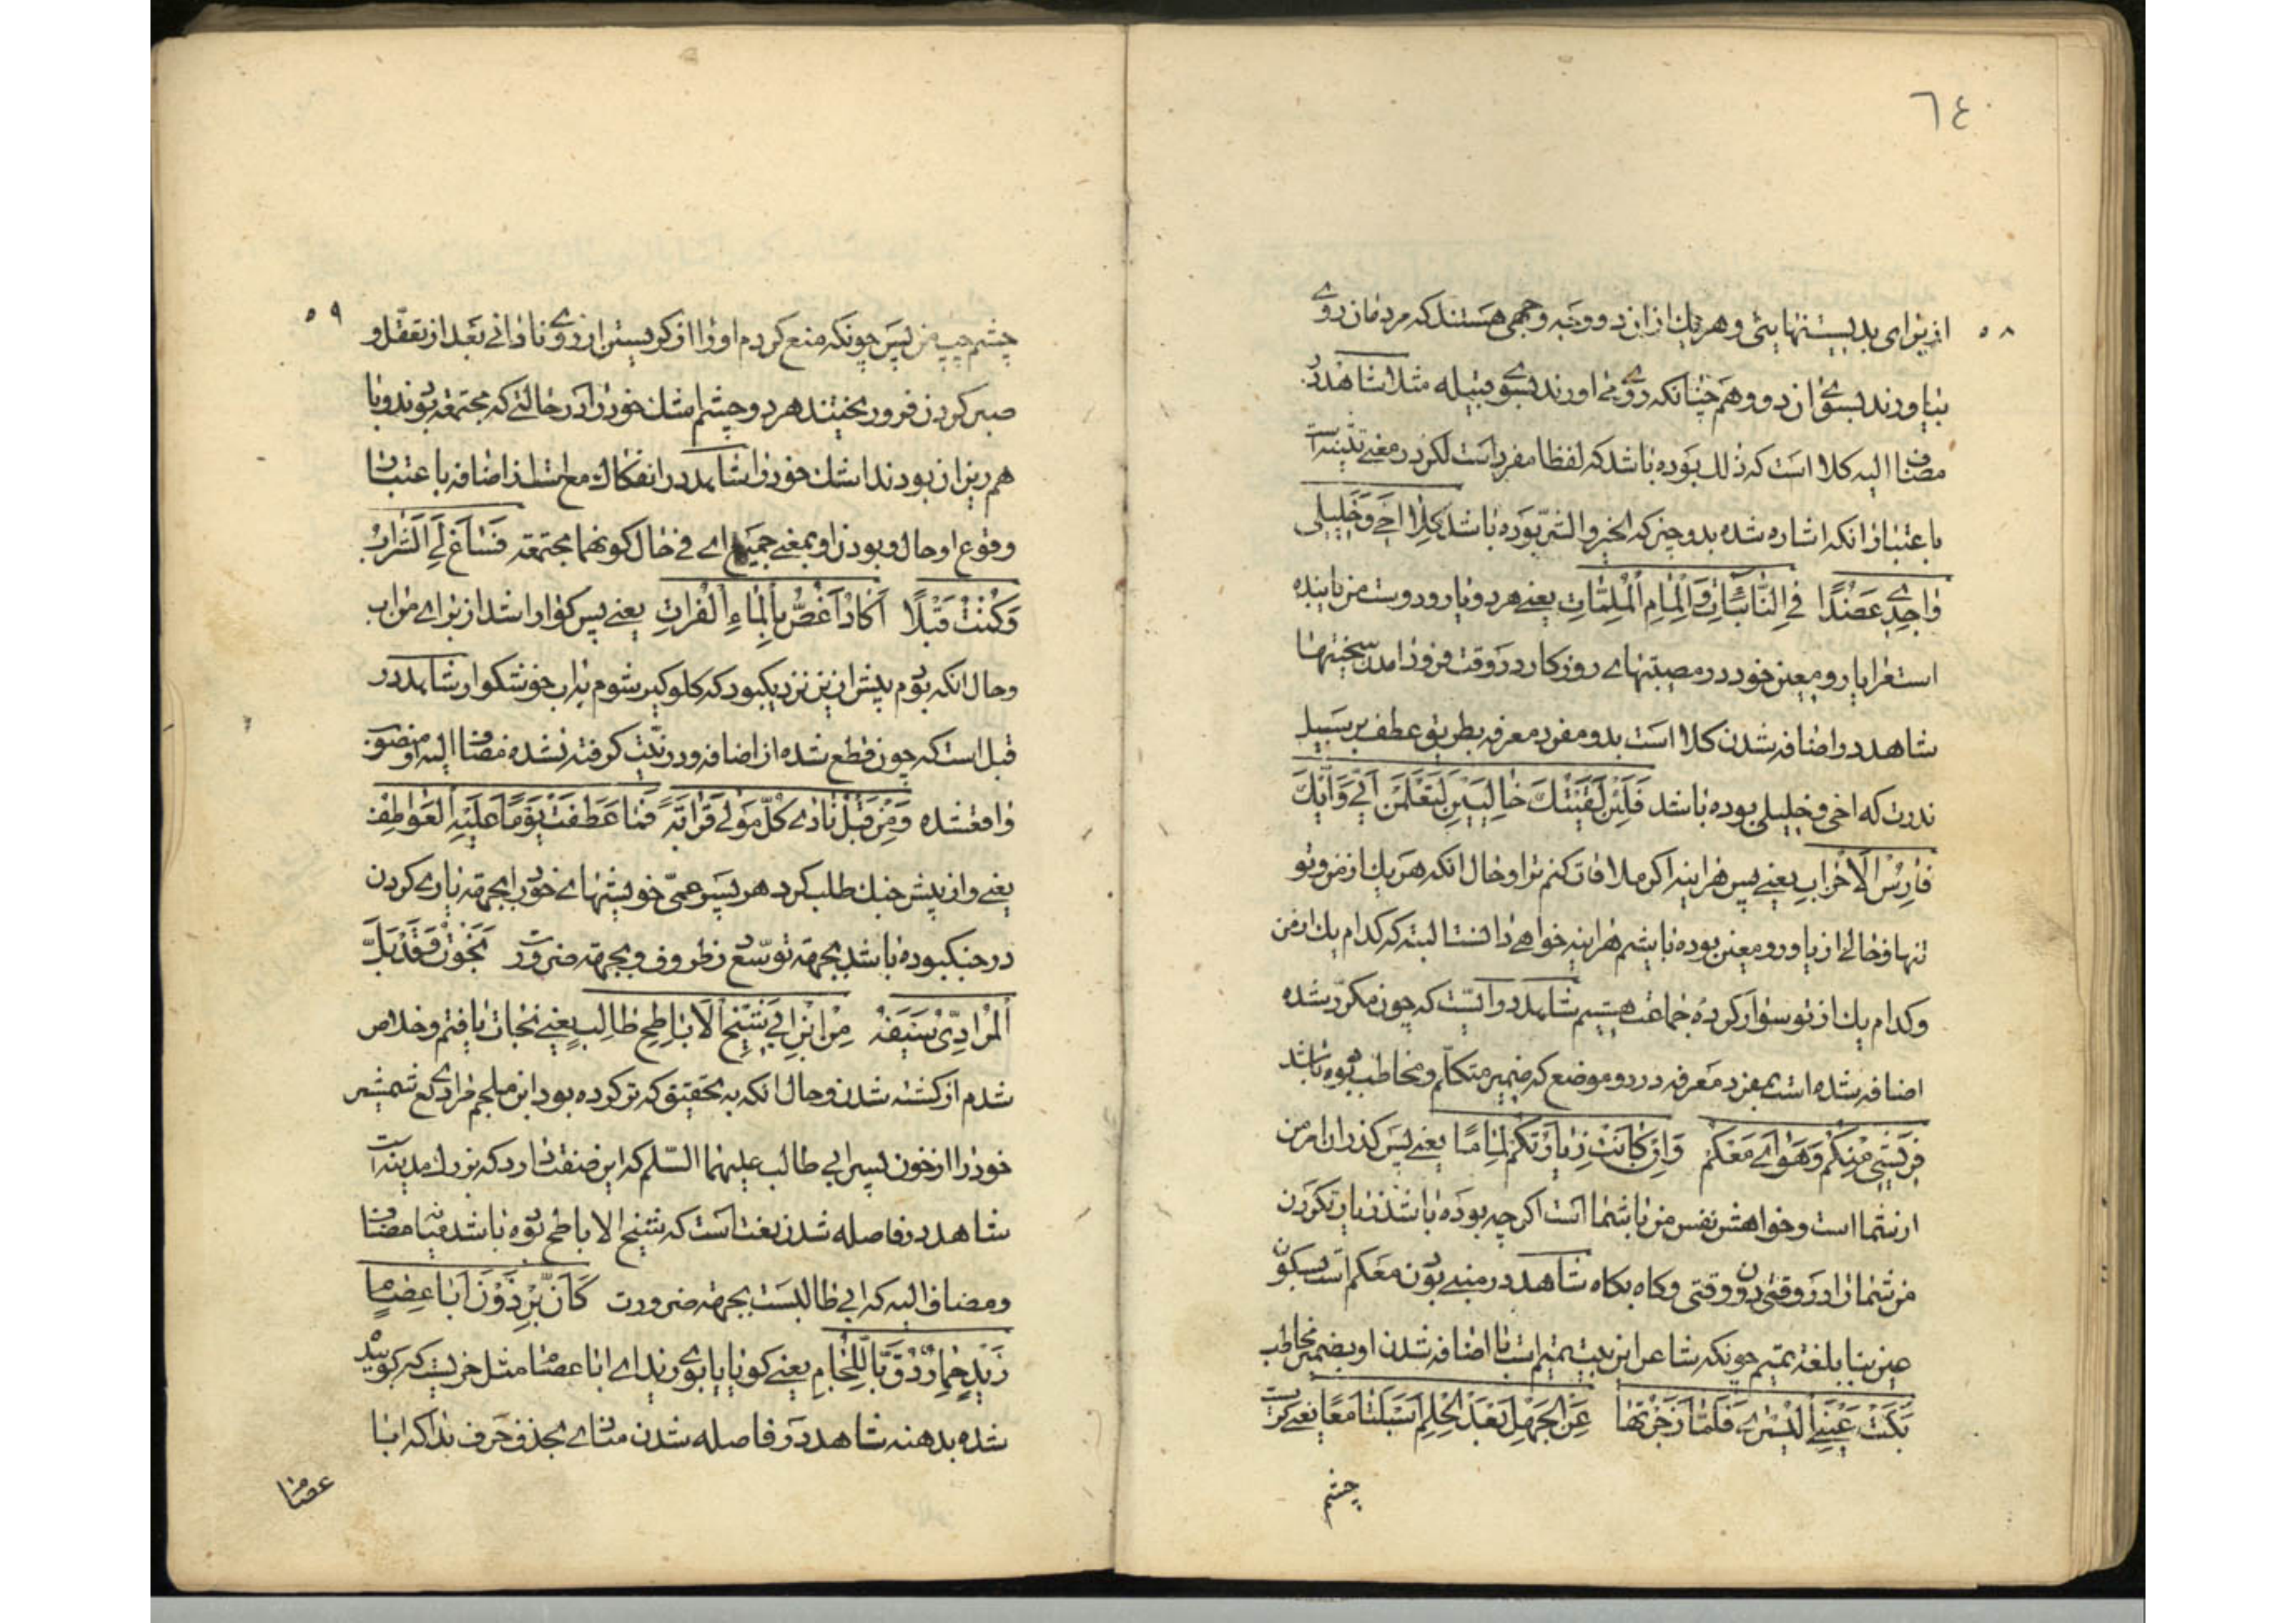 ٦٤
٥٨
از برای بدیستنهایتی و هر یك از ان دو وجه و جهی هستند که مردمان روی
بیاورند بسوی ان دو و هم چنانکه روی می اورند بسوی قبیله مثلا شاهد در
مضاف الیه کلا است که ذلك بوده باشد که لفظا مفرد است لکن در معنی تثنیه است
باعتبار انکه اشاره شده بدو چیز که الخیر و الشر بوده باشد کِلَا اَخِی وَ خَلِیلِی
وَاجِدِی عَضُدًا فِی النَّائِبَاتِ وَ اِلْمَامِ الْمُلِمَّاتِ یعنی هر دو یار و دوست من یابنده
استمرا یار و معین خود در مصیبتهای روزکار در وقت فرود امدن سختیها
شاهد در اضافه شدن کلا است بدو مفرد معرفه بطریق عطف بر سبیل
ندرت که اخی و خلیلی بوده باشد فَلَئِنْ لَقِیتُكَ خَالِیَیْنِ لَتَعْلَمَنْ اَیِّی وَ اَیُّكَ
فَارِسُ الْاَحْزَابِ یعنی پس هراینه اکر ملاقات کنم ترا و حال انکه هر یك از من و تو
تنها و خالی از یاور و معین بوده باشیم هراینه خواهی دانست البته که کدام یك از من
و کدام یك از تو سوار کرده جماعت هستیم شاهد در ایّست که چون مکرر شده
اضافه شده است بمفرد معرفه در دو موضع که ضمیر متکلم و مخاطب بوده باشد
فَرِیشِی مِنْکُمْ وَ هَوَایَ مَعْکُمْ وَ اِنْ کَانَتْ زِیَارَتُکُمْ لِمَامًا یعنی پس کذران امر من
از شما است و خواهش نفس من با شما است اکرچه بوده باشد زیارت کردن
من شمارا در وقتی دون وقتی و کاه بکاه شاهد در مبنی بودن معکم است بسکون
عین بنا بلغة تمیم چونکه شاعر این بیت تمیم است با اضافه شدن او بضمیر مخاطب
بَکَتْ عَیْنِیَ الْیُسْرَی فَلَمَّا زَجَرْتُهَا عَنِ الْجَهْلِ بَعْدَ الْحِلْمِ اَسْبَلَتَا مَعًا یعنی کریست
چشم
٥٩
چشم چپ من پس چونکه منع کردم او را از کریستن از روی نادانی بعد از تعقّل و
صبر کردن فرو ریختند هر دو چشم اشك خود را در حالتی که مجتمعه بودند و با
هم ریزان بودند اشك خود را شاهد در انفکاك مع است از اضافه باعتبار
وقوع او حال و بودن او بمعنی جمیع ای فی حال کونهما مجتمعة فَسَاغَ لِیَ الشَّرَابُ
وَ کُنْتُ قَبْلًا اَکَادُ اَغُصُّ بِالْمَاءِ الْفُرَاتِ یعنی پس کوارا شد از برای من اب
و حال انکه بودم پیش از این نزدیکبود که کلوکیر شوم به اب خوشکوار شاهد در
قبل است که چون قطع شده از اضافه و در نیت کرفته نشده مضاف الیه او منصوب
واقعشده وَ مِنْ قَبْلِ نَادَی کُلُّ مَوْلَی قَرَابَةً فَمَا عَطَفَتْ یَوْمًا عَلَیْهِ الْعَوَاطِفُ
یعنی و از پیش جنك طلب کرد هر پسر عمّی خویشهای خود را بجهة یاری کردن
در جنکبوده باشد بجهة توسّع در ظروف و بجهة ضرورت نَجَوْتُ وَ قَدْ بَلَّ
الْمُرَادِیُّ سَیْفَهُ مِنِ ابْنِ اَبِی شَیْخِ الْاَبَاطِحِ طَالِبٍ یعنی نجات یافتم و خلاص
شدم از کشته شدن و حال انکه به تحقیق که تر کرده بود ابن ملجم مرادی شمشیر
خود را از خون پسر ابی طالب علیهما السّلم که این صفت دارد که بزرك مدینه است
شاهد در فاصله شدن نعت است که شیخ الاباطح بوده باشد میان مضاف
و مضاف الیه که ابی طالبست بجهة ضرورت کَاَنَّ بِرْذَوْنَ اَبَا عِصَامٍ
زَیْدٍ حِمَارٌ دُقَّ بِاللِّجَامِ یعنی کویا یابوی زید ای ابا عصام مثل خریست که کوبیده
شده بدهنه شاهد در فاصله شدن منادای بحذف حرف ندا که ابا
عصام